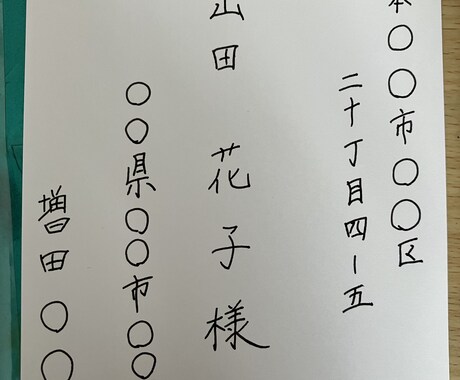 〇〇市〇〇区
二十丁目四ー五
山田 花子 様
〇〇県〇〇市〇〇
増田 〇〇